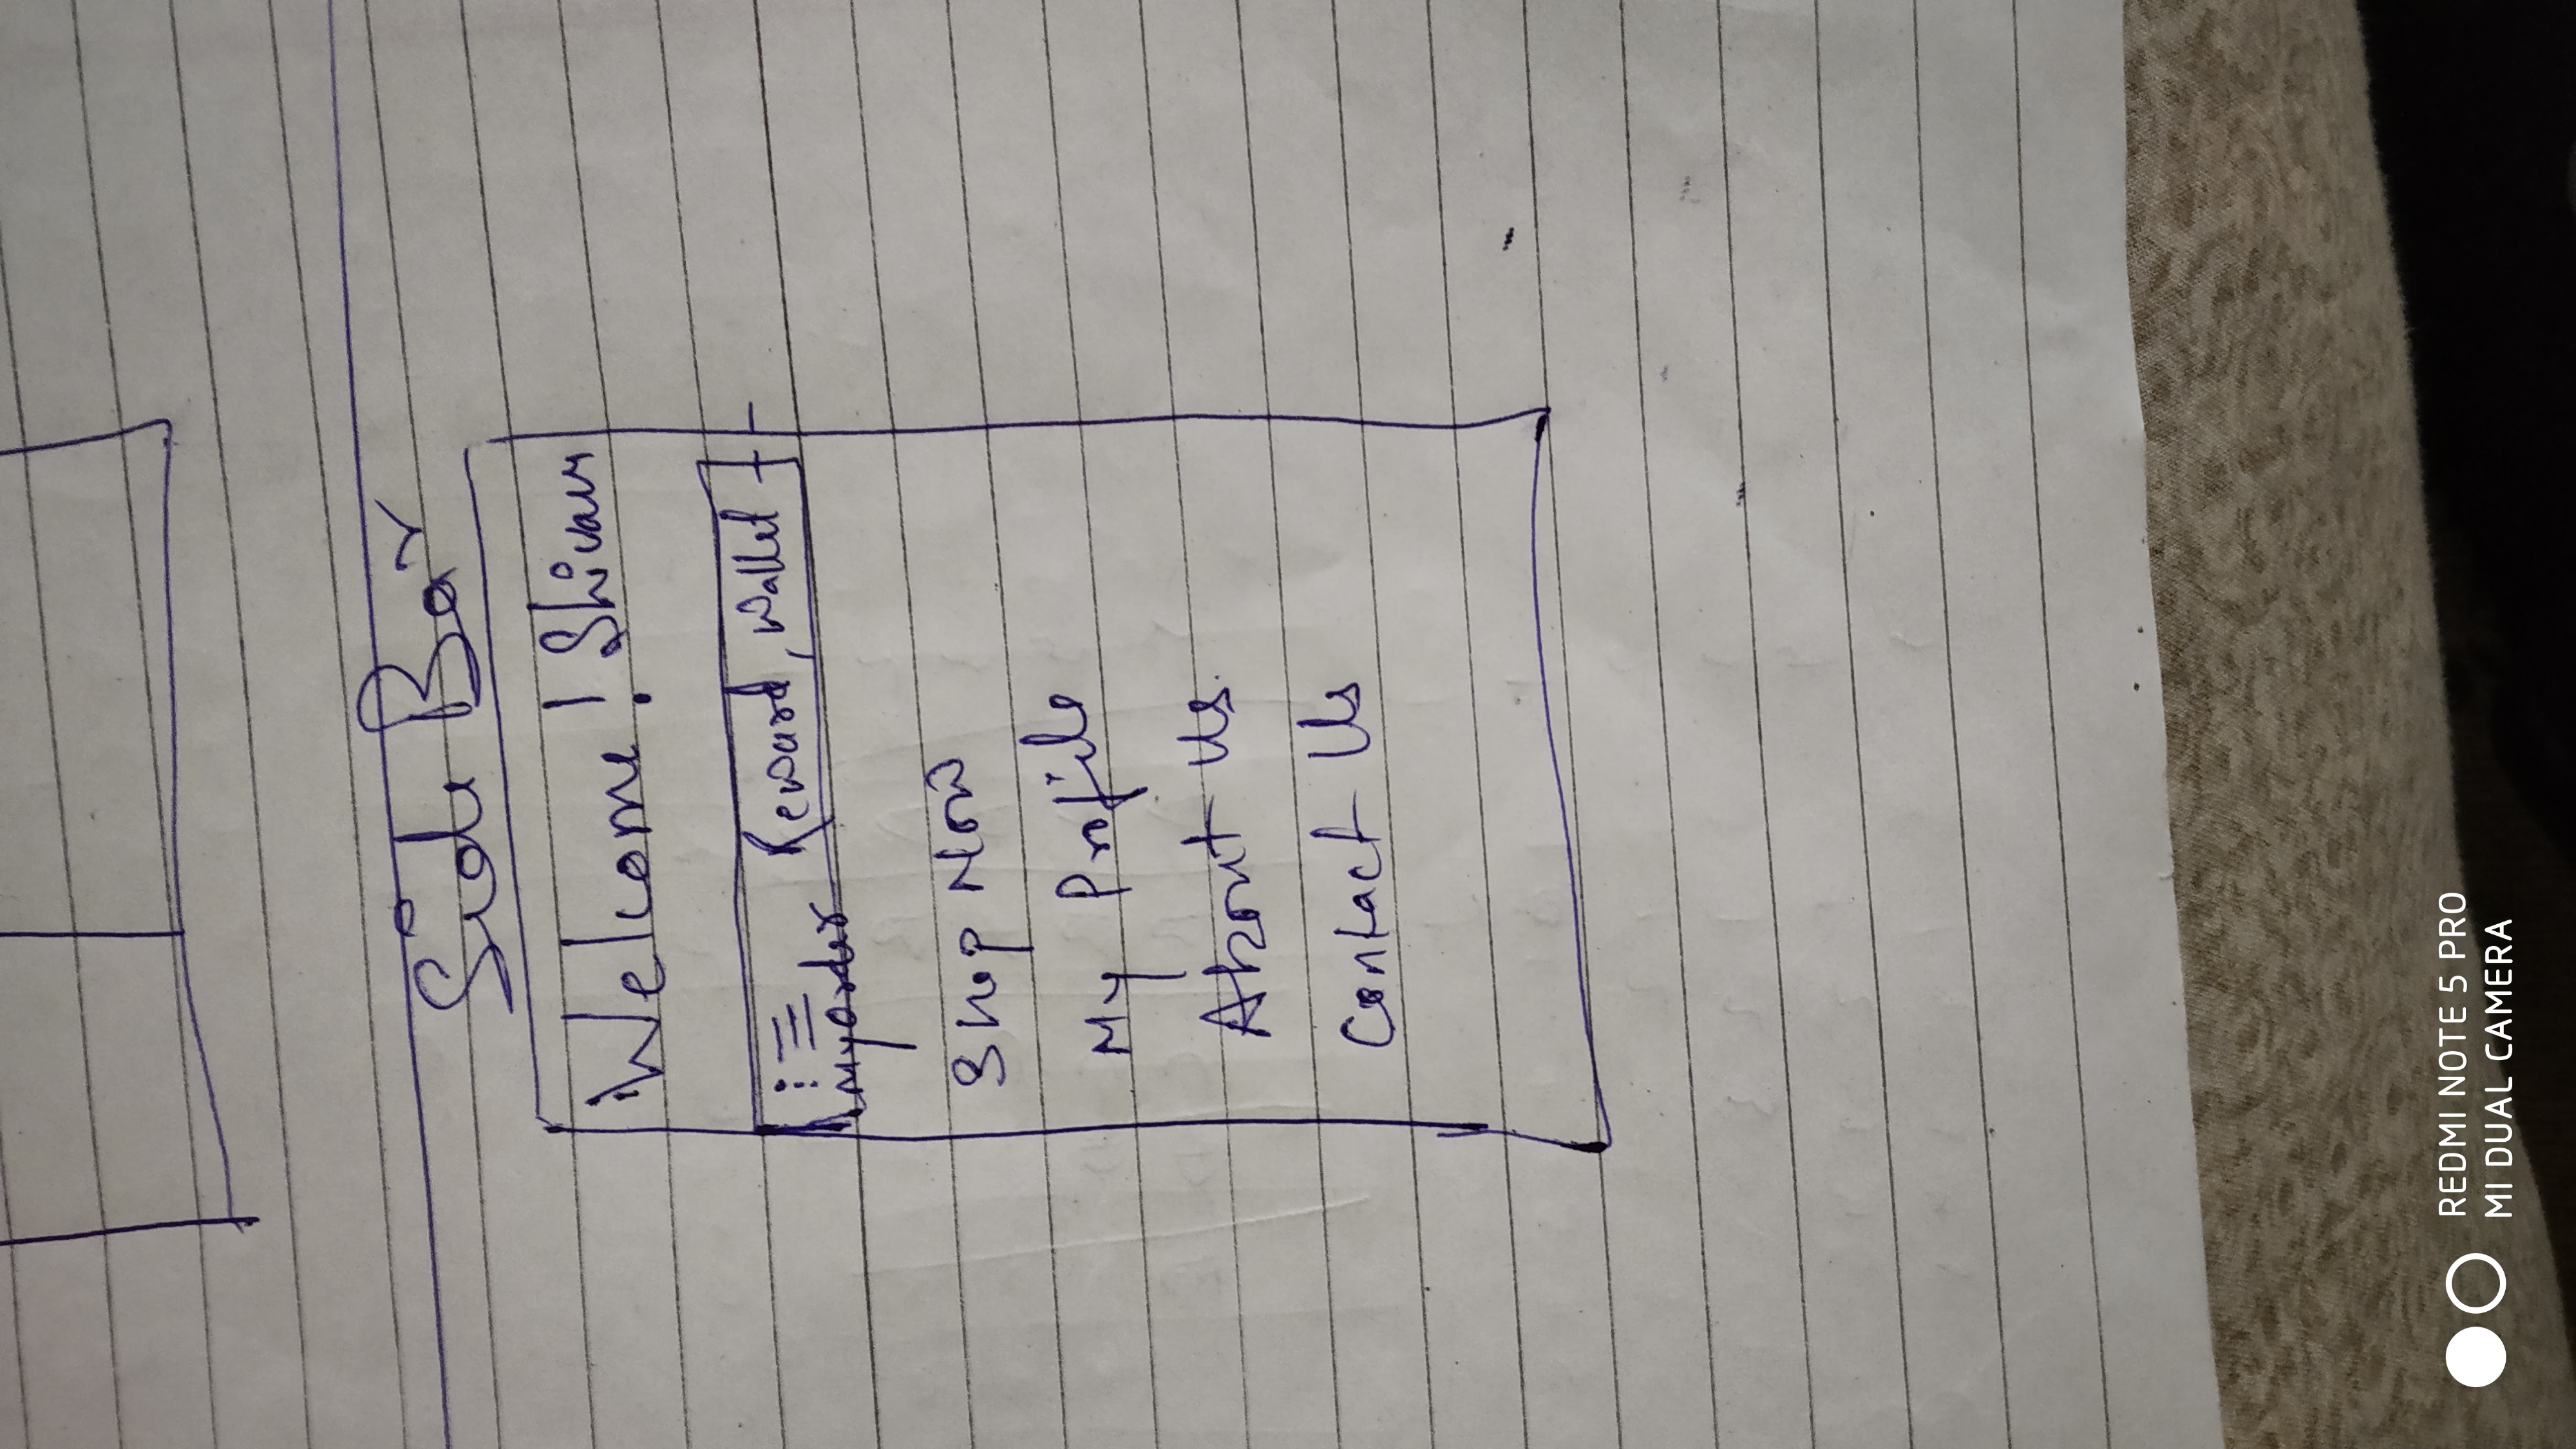 Side Bar
Welcome! Shivam
My order Reward, Wallet
Shop Now
My Profile
About Us.
Contact Us
REDMI NOTE 5 PRO
MI DUAL CAMERA